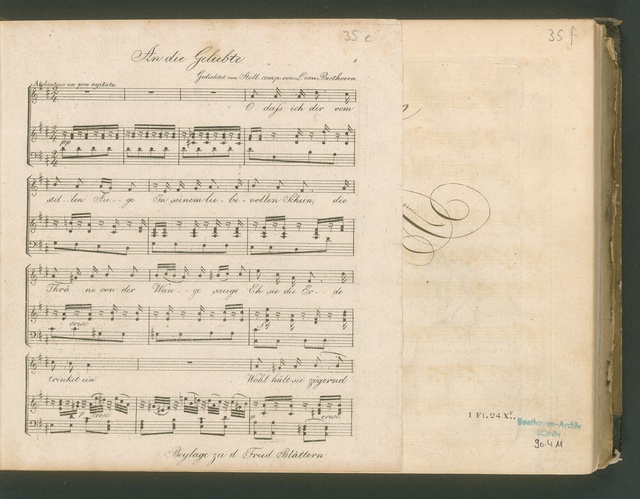 35 e
35 f
An die Geliebte
1
Gedichtet von Stoll comp. von L. van Beethoven
Andantino un poco agitato
O dass ich dir vom
pp
stil-len Au--ge In seinem lie-be-vollen Schein, die
Thrä ne von der Wan--ge sauge Eh sie die Er-de
cresc
trinket ein Wohl hält sie zögernd
p cresc p cresc
Beylage zu d Fried Blättern
1 Fl. 24 Xr.
Beethoven-Archiv
BONN